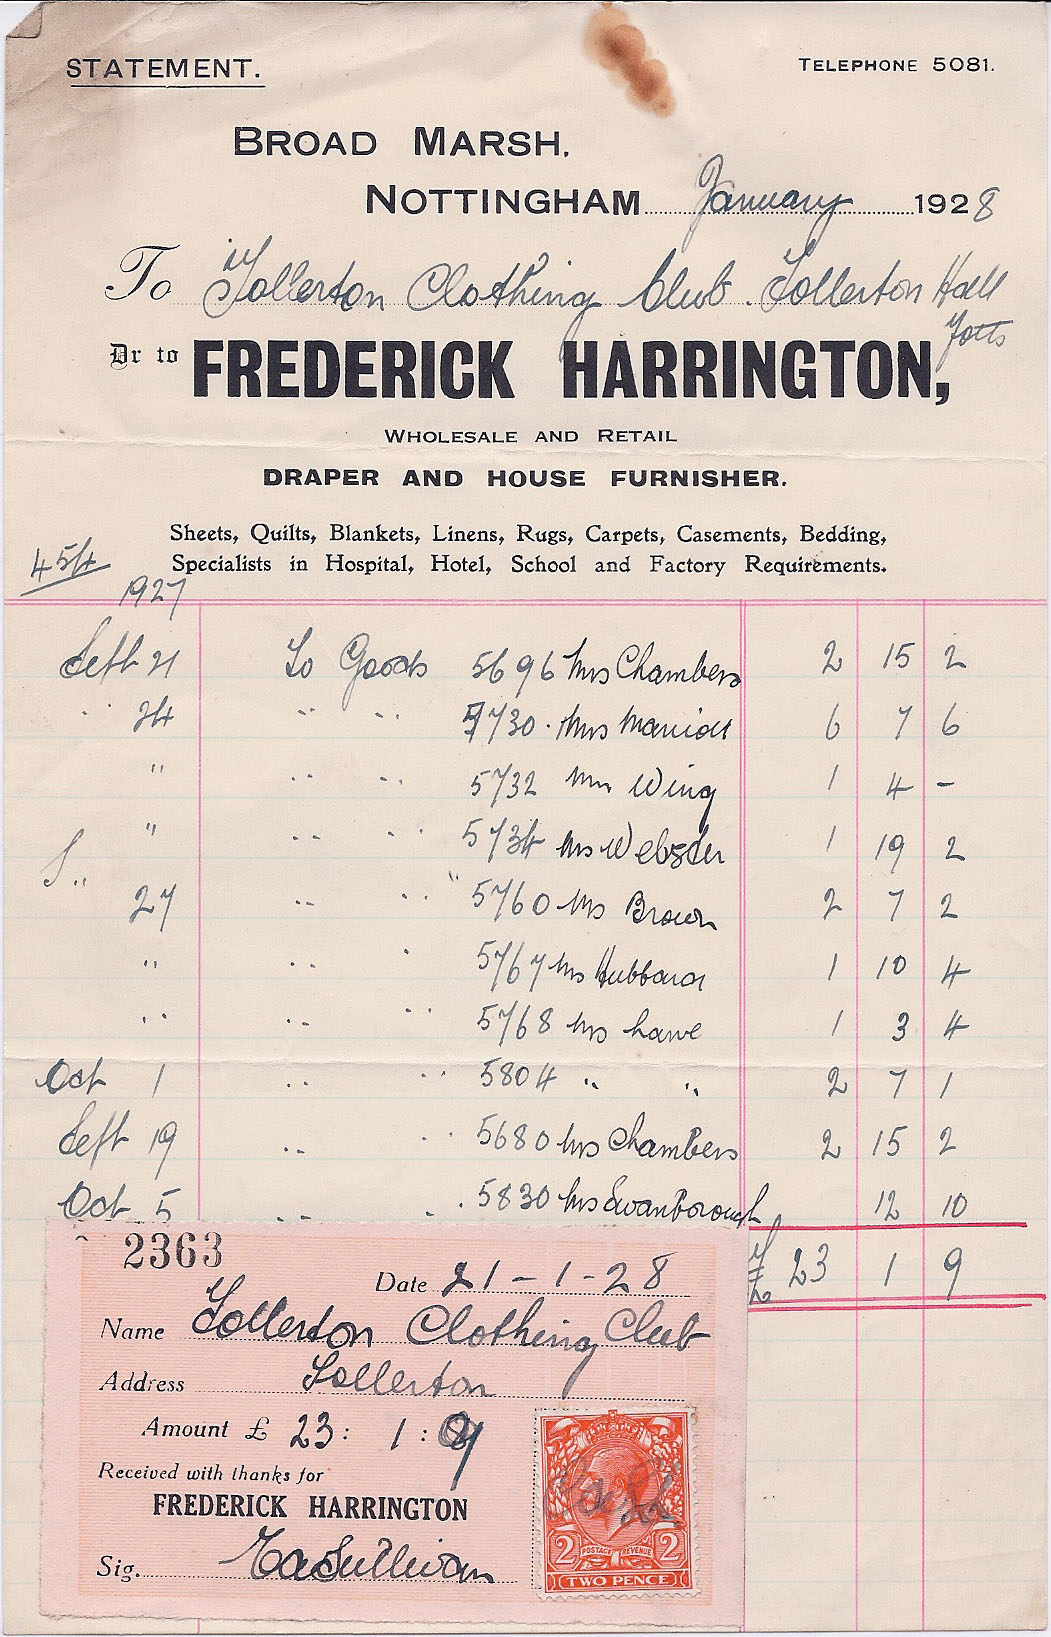 STATEMENT.
TELEPHONE 5081.
BROAD MARSH,
NOTTINGHAM January 1928
To Tollerton Clothing Club. Tollerton Hall
Notts
Dr to FREDERICK HARRINGTON,
WHOLESALE AND RETAIL
DRAPER AND HOUSE FURNISHER.
Sheets, Quilts, Blankets, Linens, Rugs, Carpets, Casements, Bedding,
Specialists in Hospital, Hotel, School and Factory Requirements.
1927
Sept 21 To Goods 5696 Mrs Chambers 2 15 2
" 24 " " 5730 Mrs Marriott 6 7 6
" " " 5732 Mrs Wing 1 4 -
" " " 5734 Mrs Webster 1 19 2
" 27 " " 5760 Mrs Brown 2 7 2
" " " 5767 Mrs Hubbard 1 10 4
" " " 5768 Mrs Lawe 1 3 4
Oct 1 " " 5804 " " 2 7 1
Sept 19 " " 5680 Mrs Chambers 2 15 2
Oct 5 " " 5830 Mrs Swanborough 12 10
£ 23 1 9
2363
Date 21-1-28
Name Tollerton Clothing Club
Address Tollerton
Amount £ 23: 1: 9
Received with thanks for
FREDERICK HARRINGTON
Sig. Sullivan
2 POSTAGE REVENUE 2
TWO PENCE